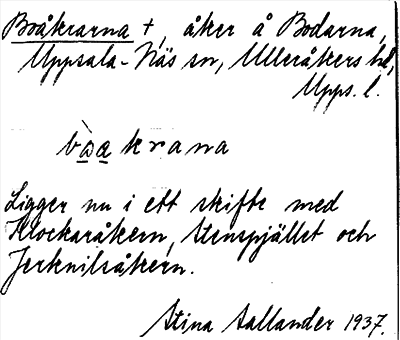 Boåkrarna +, åker å Bodarna,
Uppsala-Näs sn, Ulleråkers hd,
Upps. l.
bòakrana
Ligger nu i ett skifte med
Klockaråkern, Stenspjället och
Jerknilsåkern.
Stina Aallander 1937.